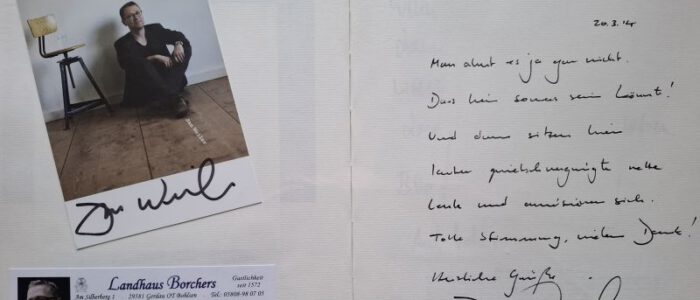 Jan Weiler
Jan Weiler
Landhaus Borchers
Gastlichkeit
seit 1572
Am Silberberg 1 · 29581 Gerdau OT Bohlsen · Tel. 05808-98 07 05
20.3.14
Man ahnt es ja gar nicht.
Dass hier sowas sein könnt!
Und dann sitzen hier
lauter quietschvergnügte nette
Leute und amüsieren sich.
Tolle Stimmung, vielen Dank!
Herzliche Grüße